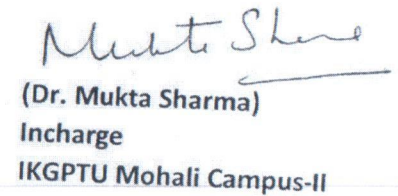 Mukta Sharma
(Dr. Mukta Sharma)
Incharge
IKGPTU Mohali Campus-II